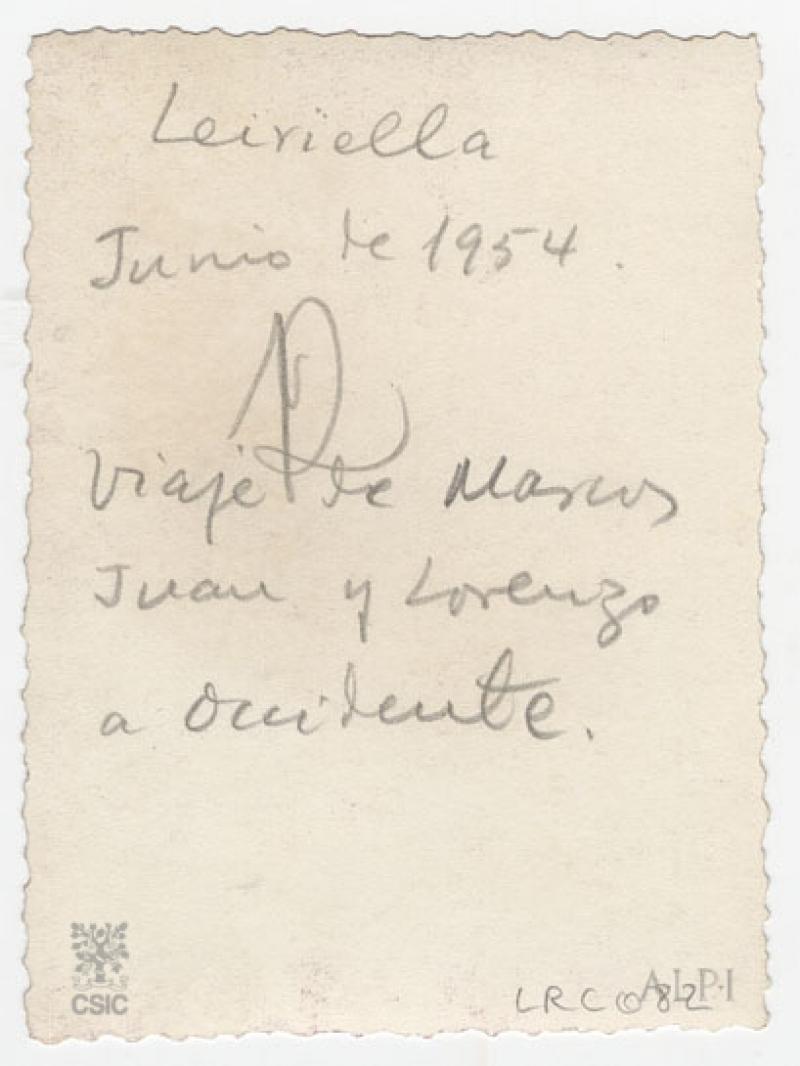 Leiriella
Junio de 1954.
R
Viaje de Marcos
Juan y Lorenzo
a Occidente.
CSIC
A·L·P·I
LRC 082